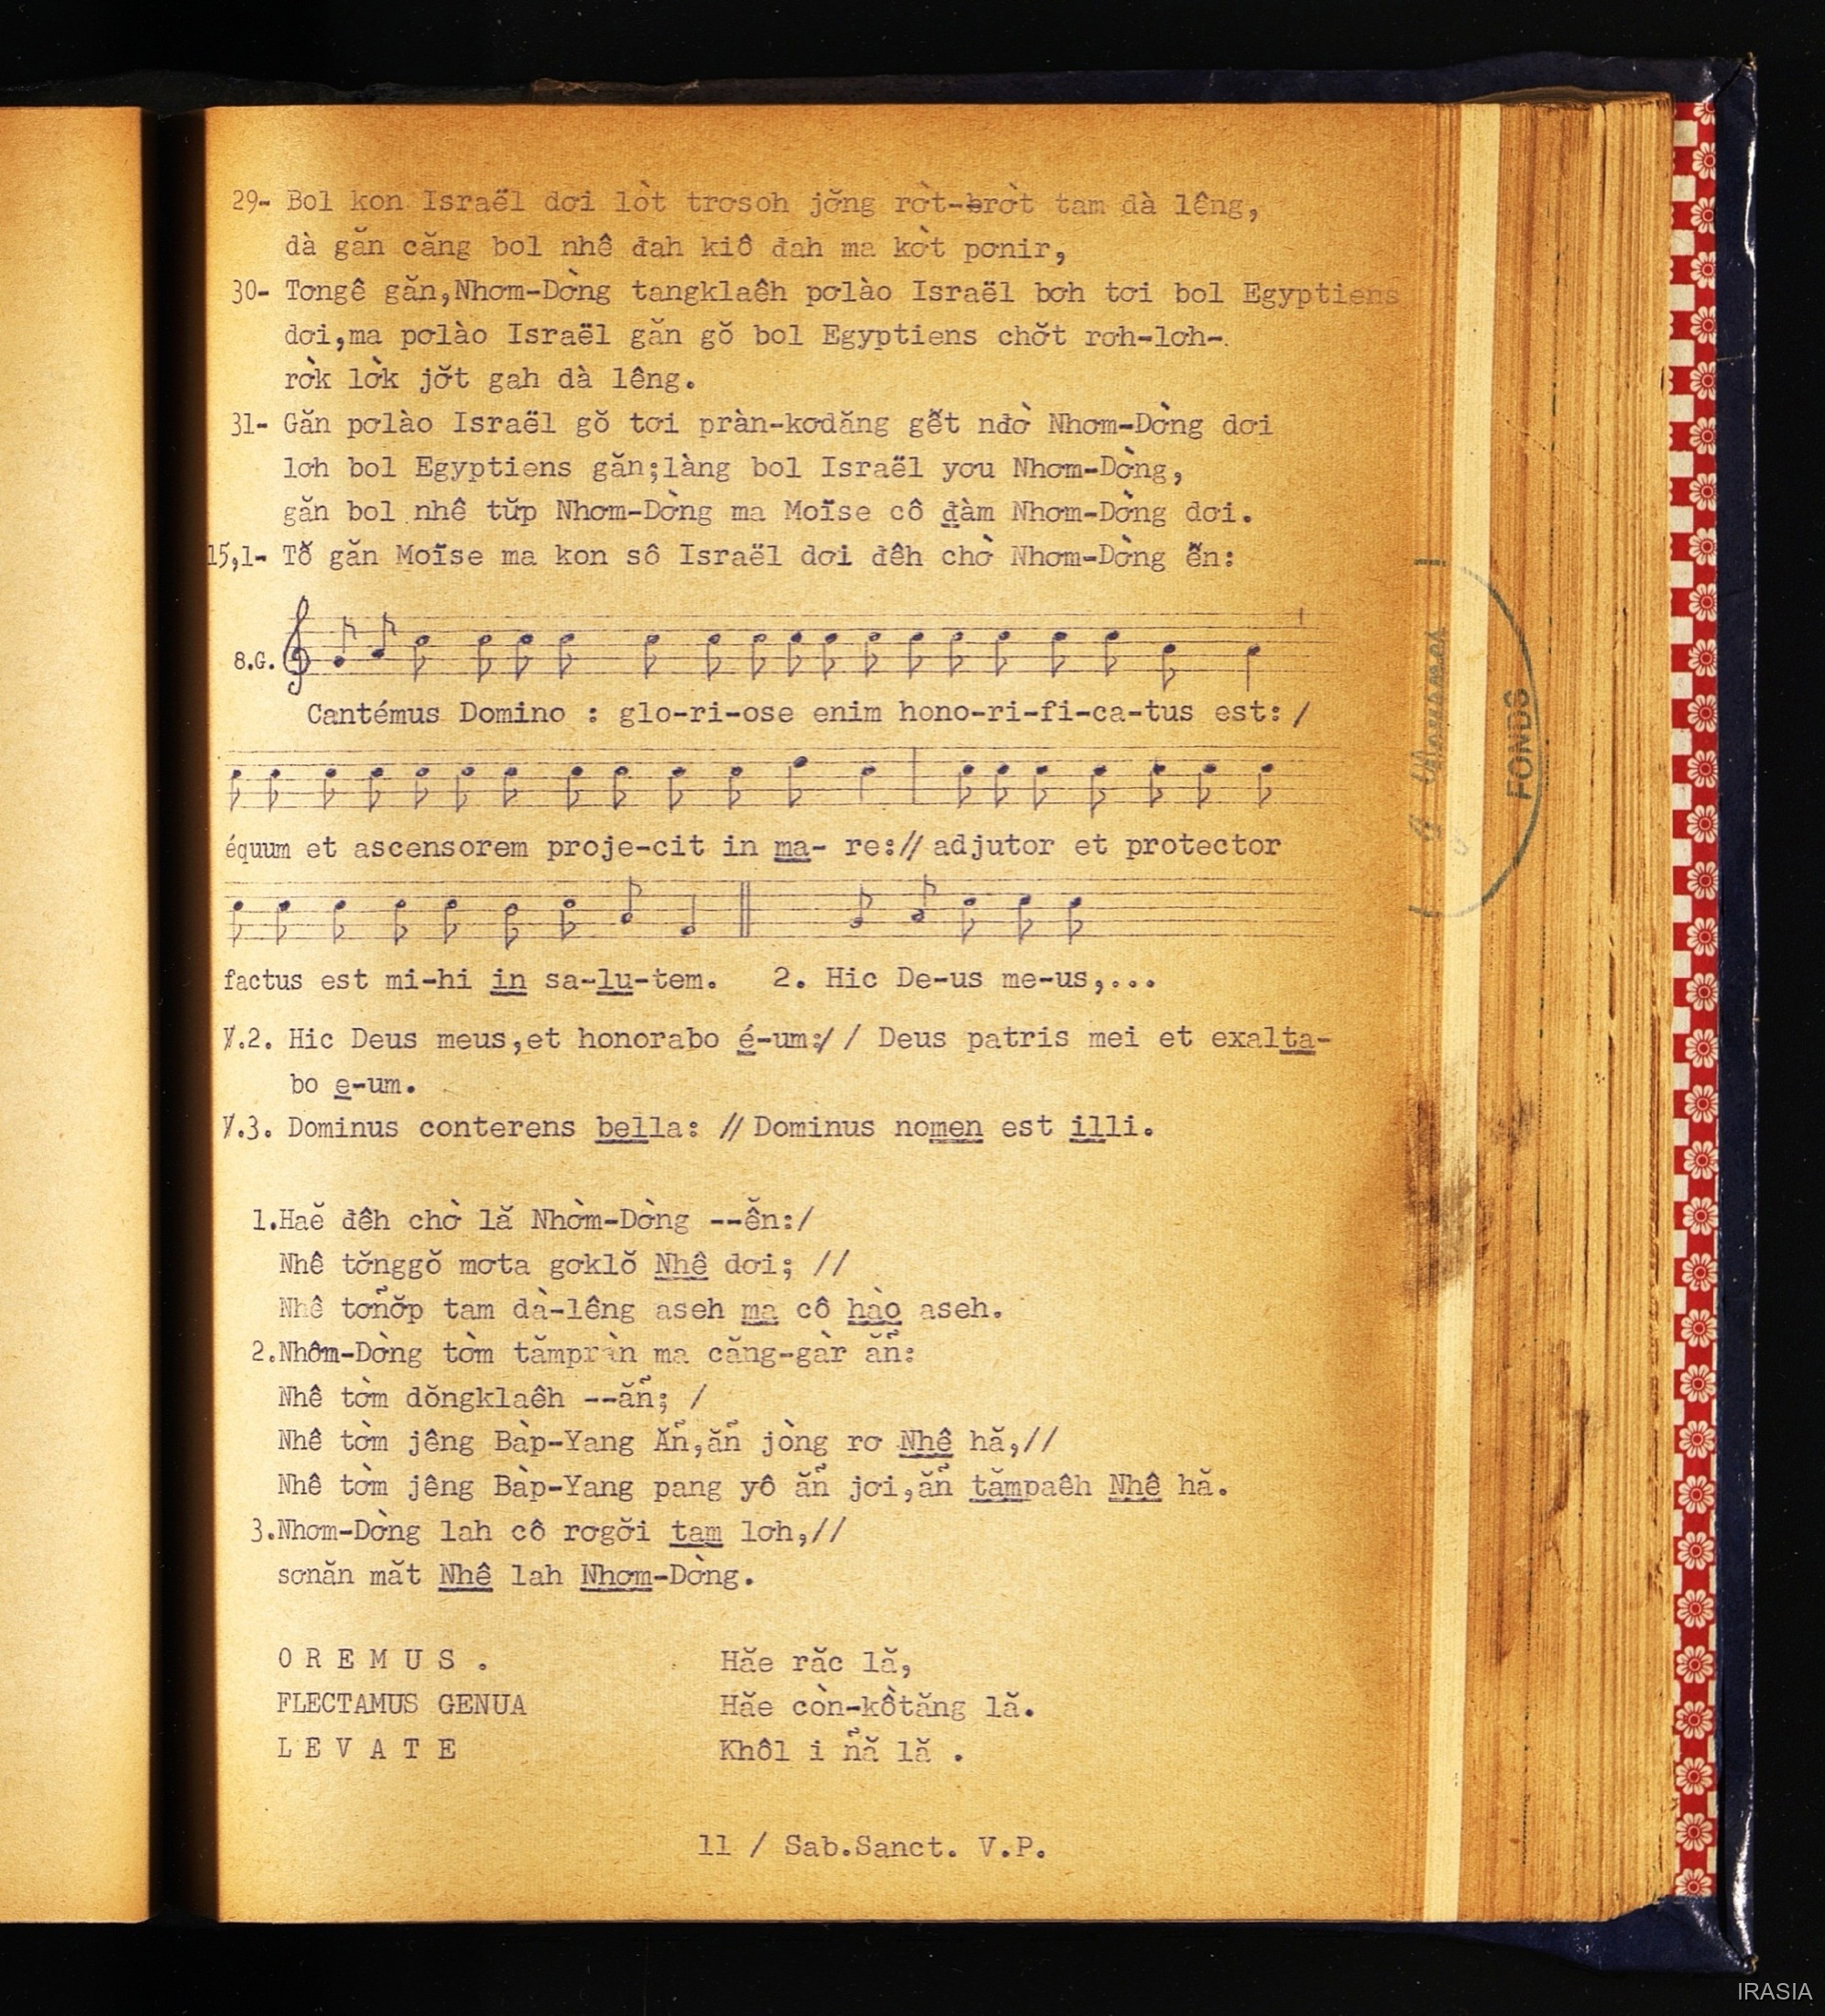 29- Bol kon Israël dơi lòt trơsoh jơ̆ng rờt-brờt tam dà lêng,
dà găn căng bol nhê đah kiô đah ma kờt pơnir,
30- Tơngê găn,Nhơm-Dờng tangklaêh pơlào Israël bơh tơi bol Egyptiens
dơi,ma pơlào Israël găn gŏ bol Egyptiens chơ̆t rơh-lơh-
rờk lờk jơ̆t gah dà lêng.
31- Găn pơlào Israël gŏ tơi pràn-kơdăng gê̆t nđờ Nhơm-Dờng dơi
lơh bol Egyptiens găn;làng bol Israël yơu Nhơm-Dờng,
găn bol nhê tŭp Nhơm-Dờng ma Moïse cô đàm Nhơm-Dờng dơi.
15,1- Tơ̆ găn Moïse ma kon sô Israël dơi đêh chờ Nhơm-Dờng ê̆n:
8.G.
Cantémus Domino : glo-ri-ose enim hono-ri-fi-ca-tus est: /
équum et ascensorem proje-cit in ma- re:// adjutor et protector
factus est mi-hi in sa-lu-tem. 2. Hic De-us me-us,...
℣.2. Hic Deus meus,et honorabo é-um:// Deus patris mei et exalta-
bo e-um.
℣.3. Dominus conterens bella: // Dominus nomen est illi.
1.Haĕ đêh chờ lă Nhờm-Dờng --ê̆n:/
Nhê tơ̆nggŏ mơta gơklŏ Nhê dơi; //
Nhê tơñơ̆p tam dà-lêng aseh ma cô hào aseh.
2.Nhơ̂m-Dờng tờm tămpràn ma căng-gàr ăñ:
Nhê tờm dŏngklaêh --ăñ; /
Nhê tờm jêng Bàp-Yang Ăñ,ăñ jòng rơ Nhê hă,//
Nhê tờm jêng Bàp-Yang pang yô ăñ jơi,ăñ tămpaêh Nhê hă.
3.Nhơm-Dờng lah cô rơgơ̆i tam lơh,//
sơnăn măt Nhê lah Nhơm-Dờng.
O R E M U S . Hăe răc lă,
FLECTAMUS GENUA Hăe còn-kồtăng lă.
L E V A T E Khôl i ñă lă .
11 / Sab.Sanct. V.P.
FONDS
IRASIA